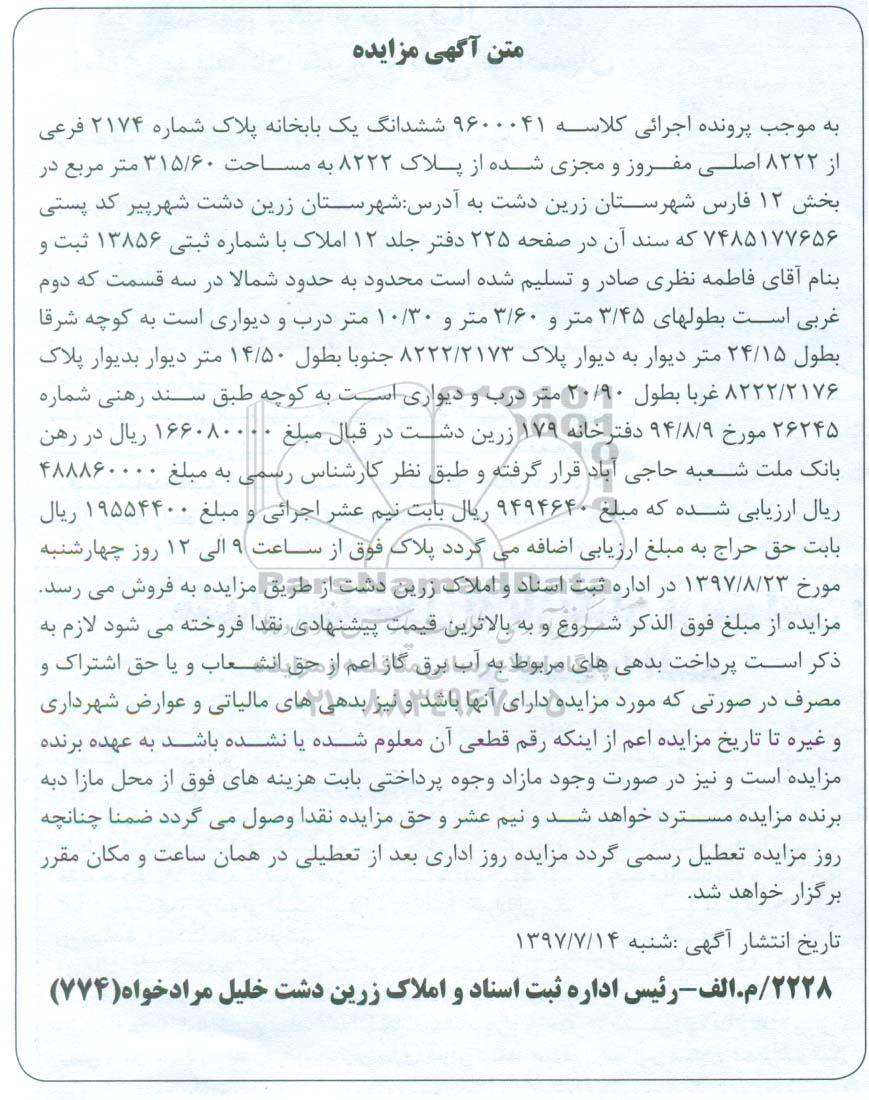 متن آگهی مزایده
به موجب پرونده اجرائی کلاسه ۹۶۰۰۰۴۱ ششدانگ یک بابخانه پلاک شماره ۲۱۷۴ فرعی
از ۸۲۲۲ اصلی مفروز و مجزی شده از پلاک ۸۲۲۲ به مساحت ۳۱۵/۶۰ متر مربع در
بخش ۱۲ فارس شهرستان زرین دشت به آدرس:شهرستان زرین دشت شهرپیر کد پستی
۷۴۸۵۱۷۷۶۵۶ که سند آن در صفحه ۲۲۵ دفتر جلد ۱۲ املاک با شماره ثبتی ۱۳۸۵۶ ثبت و
بنام آقای فاطمه نظری صادر و تسلیم شده است محدود به حدود شمالا در سه قسمت که دوم
غربی است بطولهای ۳/۴۵ متر و ۳/۶۰ متر و ۱۰/۳۰ متر درب و دیواری است به کوچه شرقا
بطول ۲۴/۱۵ متر دیوار به دیوار پلاک ۸۲۲۲/۲۱۷۳ جنوبا بطول ۱۴/۵۰ متر دیوار بدیوار پلاک
۸۲۲۲/۲۱۷۶ غربا بطول ۲۰/۹۰ متر درب و دیواری است به کوچه طبق سند رهنی شماره
۲۶۲۴۵ مورخ ۹۴/۸/۹ دفترخانه ۱۷۹ زرین دشت در قبال مبلغ ۱۶۶۰۸۰۰۰۰ ریال در رهن
بانک ملت شعبه حاجی آباد قرار گرفته و طبق نظر کارشناس رسمی به مبلغ ۴۸۸۸۶۰۰۰۰
ریال ارزیابی شده که مبلغ ۹۴۹۴۶۴۰ ریال بابت نیم عشر اجرائی و مبلغ ۱۹۵۵۴۴۰۰ ریال
بابت حق حراج به مبلغ ارزیابی اضافه می گردد پلاک فوق از ساعت ۹ الی ۱۲ روز چهارشنبه
مورخ ۱۳۹۷/۸/۲۳ در اداره ثبت اسناد و املاک زرین دشت از طریق مزایده به فروش می رسد.
مزایده از مبلغ فوق الذکر شروع و به بالاترین قیمت پیشنهادی نقدا فروخته می شود لازم به
ذکر است پرداخت بدهی های مربوط به آب برق گاز اعم از حق انشعاب و یا حق اشتراک و
مصرف در صورتی که مورد مزایده دارای آنها باشد و نیز بدهی های مالیاتی و عوارض شهرداری
و غیره تا تاریخ مزایده اعم از اینکه رقم قطعی آن معلوم شده یا نشده باشد به عهده برنده
مزایده است و نیز در صورت وجود مازاد وجوه پرداختی بابت هزینه های فوق از محل مازا دبه
برنده مزایده مسترد خواهد شد و نیم عشر و حق مزایده نقدا وصول می گردد ضمنا چنانچه
روز مزایده تعطیل رسمی گردد مزایده روز اداری بعد از تعطیلی در همان ساعت و مکان مقرر
برگزار خواهد شد.
تاریخ انتشار آگهی :شنبه ۱۳۹۷/۷/۱۴
۲۲۲۸/م.الف-رئیس اداره ثبت اسناد و املاک زرین دشت خلیل مرادخواه(۷۷۴)
ParsNamadData